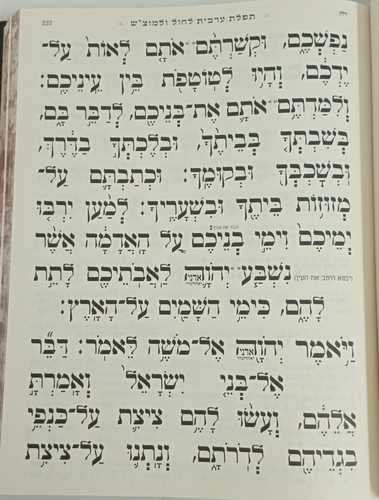 232 תפלת ערבית לחול ולמוצ״ש
נַפְשְׁכֶם, וּקְשַׁרְתֶּם אֹתָם לְאוֹת עַל־
יֶדְכֶם, וְהָיוּ לְטוֹטָפֹת בֵּין עֵינֵיכֶם:
וְלִמַּדְתֶּם אֹתָם אֶת־בְּנֵיכֶם, לְדַבֵּר בָּם,
בְּשִׁבְתְּךָ בְּבֵיתֶךָ וּבְלֶכְתְּךָ בַדֶּרֶךְ,
וּבְשָׁכְבְּךָ וּבְקוּמֶךָ: וּכְתַבְתָּם עַל־
מְזוּזוֹת בֵּיתֶךָ וּבִשְׁעָרֶיךָ: לְמַעַן יִרְבּוּ
יְמֵיכֶם וִימֵי בְנֵיכֶם עַל הָאֲדָמָה אֲשֶׁר
נִשְׁבַּע יְהֹוָה לַאֲבֹתֵיכֶם לָתֵת
לָהֶם, כִּימֵי הַשָּׁמַיִם עַל־הָאָרֶץ:
וַיֹּאמֶר יְהֹוָה אֶל־מֹשֶׁה לֵּאמֹר: דַּבֵּר
אֶל־בְּנֵי יִשְׂרָאֵל וְאָמַרְתָּ
אֲלֵהֶם, וְעָשׂוּ לָהֶם צִיצִת עַל־כַּנְפֵי
בִגְדֵיהֶם לְדֹרֹתָם, וְנָתְנוּ עַל־צִיצִת